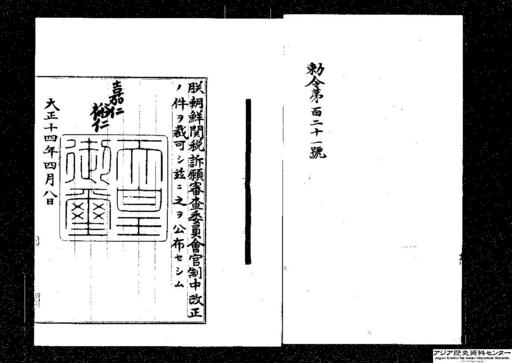 勅令第百二十一號
朕朝鮮関税訴願審査委員會官制中改正
ノ件ヲ裁可シ茲ニ之ヲ公布セシム
嘉仁
裕仁
天皇御璽
大正十四年四月八日
アジア歴史資料センター
Japan Center for Asian Historical Records